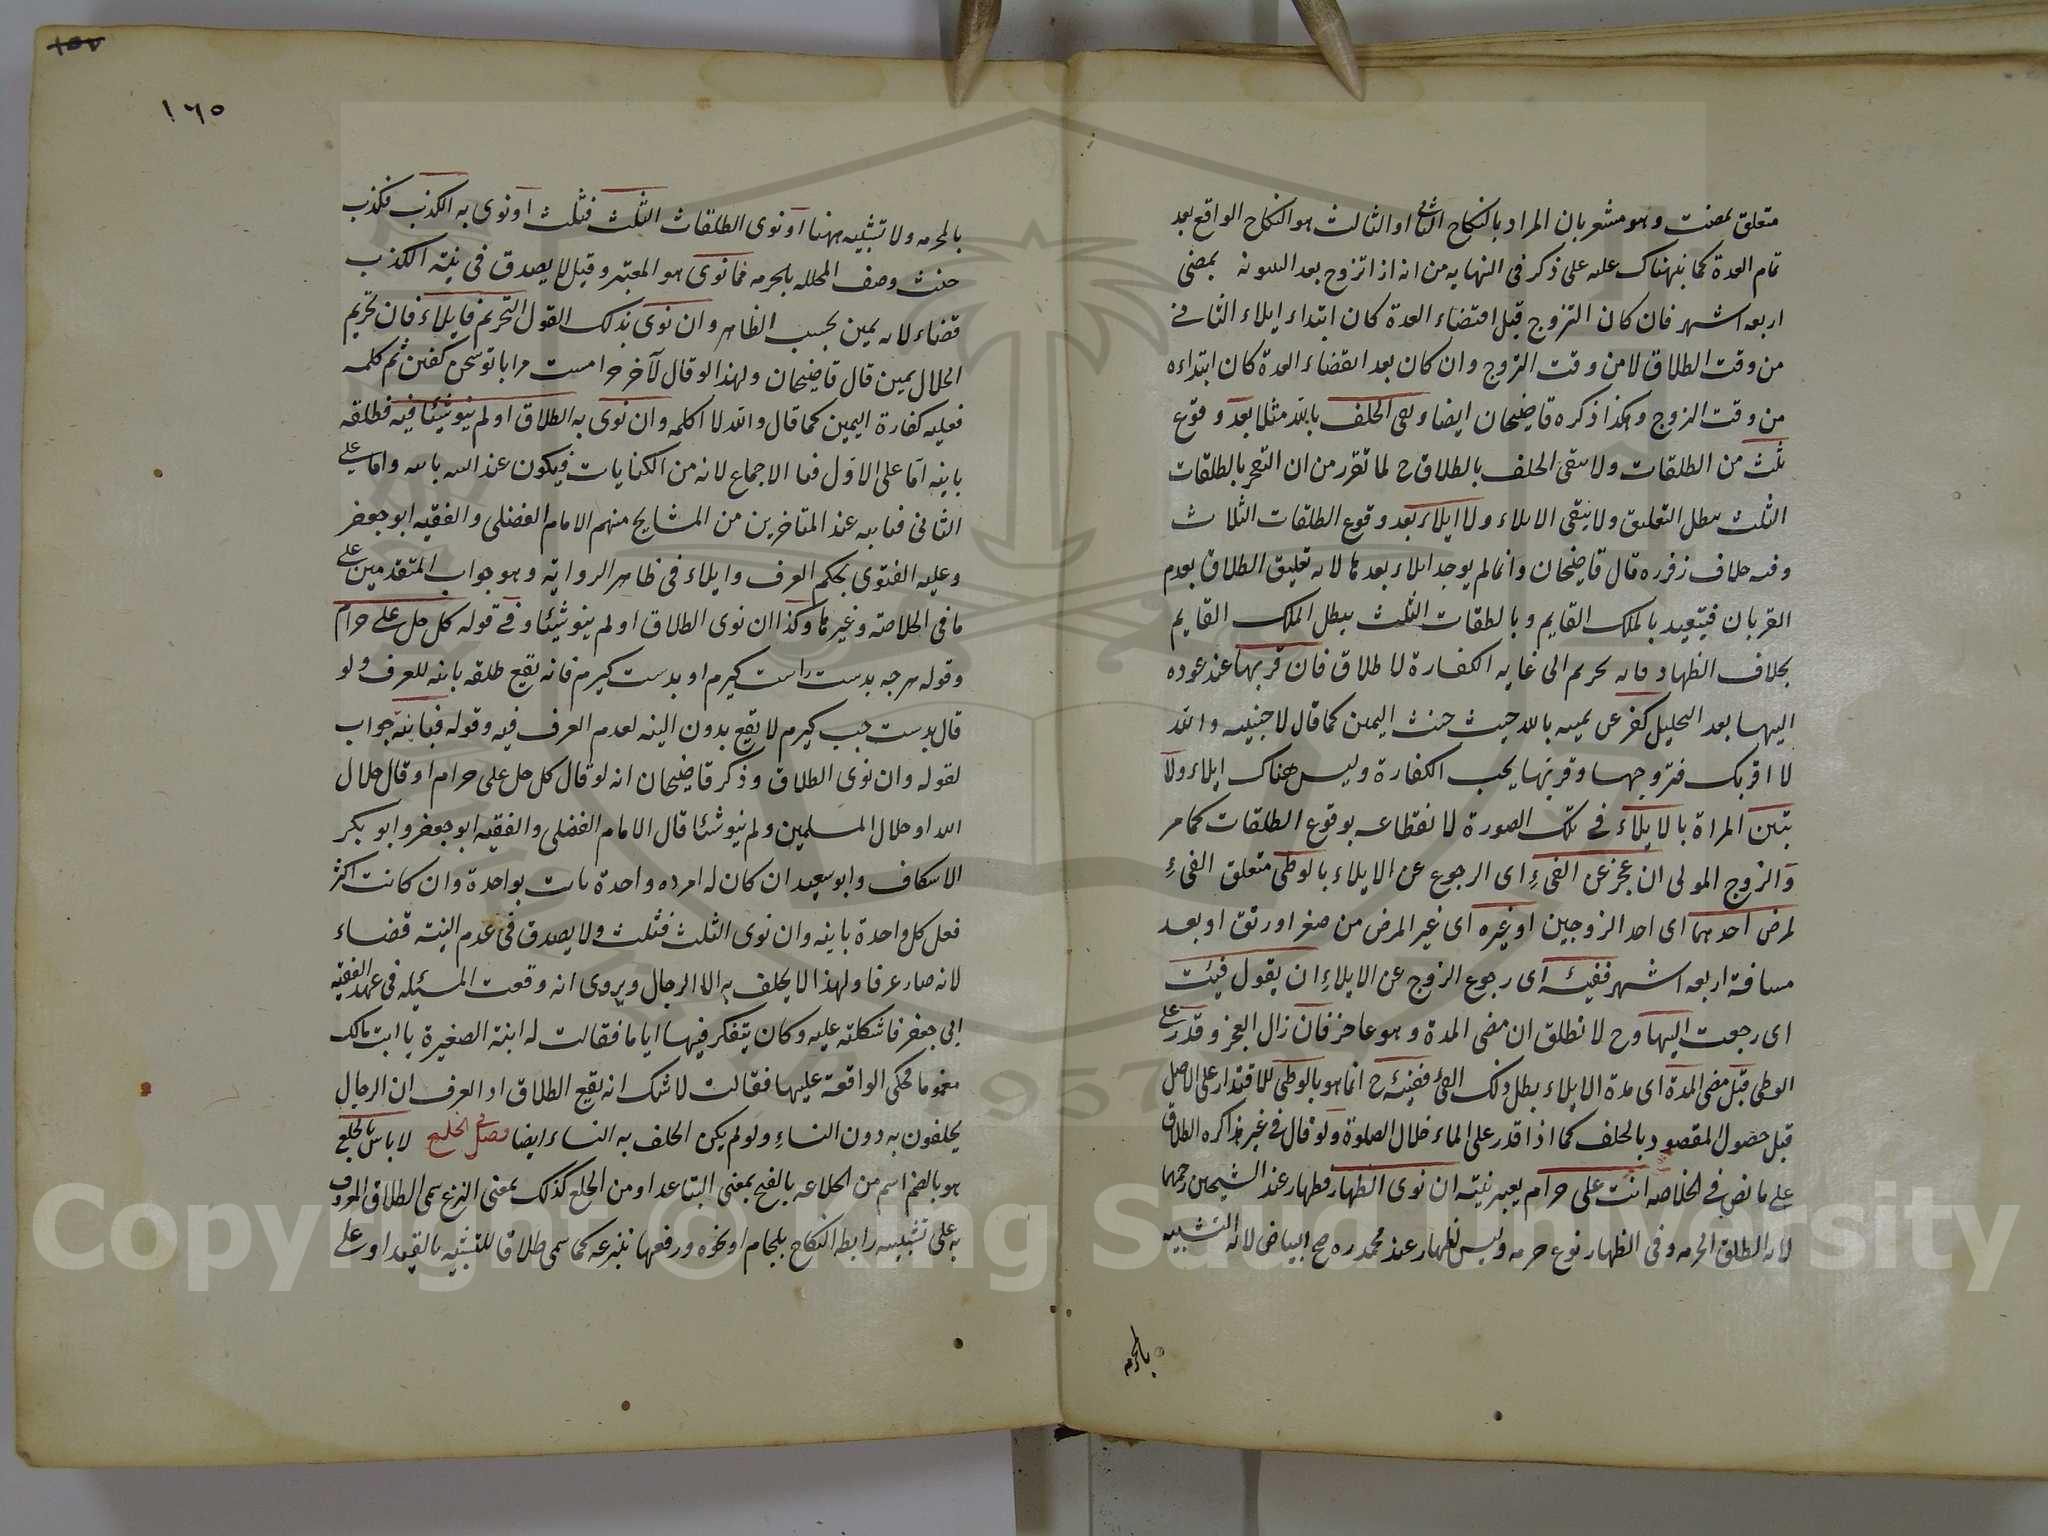 متعلق بمضت وهو مشعر بان المراد بالنكاح الثاني او الثالث هو النكاح الواقع بعد
تمام العدة كما نبهناك عليه على ذكر في النهاية من انه اذا تزوج بعد البينونة بمضي
اربعة اشهر فان كان التزوج قبل انقضاء العدة كان ابتداء ايلاء الثاني
من وقت الطلاق لا من وقت التزوج وان كان بعد انقضاء العدة كان ابتداءه
من وقت التزوج وهكذا ذكره قاضيخان ايضا وبقي الحلف بالله مثلا بعد وقوع
ثلث من الطلقات ولا يبقى الحلف بالطلاق ح لما تقرر من ان التنجيز بالطلقات
الثلث يبطل التعليق ولا يبقى الايلاء ولا ايلاء بعد وقوع الطلقات الثلاث
وفيه خلاف زفر ره قال قاضيخان وانما لم يوجد ايلاء بعدها لانه تعليق الطلاق بعدم
القربان فيتقيد بالملك القايم وبالطلقات الثلث يبطل الملك القايم
بخلاف الظهار فانه تحريم الى غاية الكفارة لا طلاق فان قربها عند عوده
اليها بعد التحليل كفر عن يمينه بالله حيث حنث اليمين كما قال لاجنبية والله
لا اقربك فتزوجها وقربها يجب الكفارة وليس هناك ايلاء ولا
تبين المراة بالايلاء في تلك الصورة لانقطاعه بوقوع الطلقات كما مر
والزوج المولى ان عجز عن الفيء اى الرجوع عن الايلاء بالوطى متعلق الفيء
لمرض احدهما اى احد الزوجين او غيره اى غير المرض من صغر او رتق او بعد
مسافة اربعة اشهر ففيئه اى رجوع الزوج عن الايلاء ان يقول فيئت
اى رجعت اليها وح لا تطلق ان مضى المدة وهو عاجز فان زال العجز وقدر على
الوطى قبل مضى المدة اى مدة الايلاء بطل ذلك الفئ ففيئه ح انما هو بالوطى للاقتدار على الاصل
قبل حصول المقصود بالحلف كما اذا قدر على الماء خلال الصلوة ولو قال في غير مذاكرة الطلاق
على ما نص في الخلاصة انت على حرام يعبر نيته ان نوى الظهار فظهار عند الشيخين رحمهما
لانه اطلق الحرمة وفى الظهار نوع حرمة وليس بظهار عند محمد ره صح البياض لانه التشبيه
بالحرمة
١٦٥
بالمحرمة ولا تشبيه ههنا او نوى الطلقات الثلث فثلث او نوى به الكذب فكذب
حيث وصف المحللة بالحرمة فما نوى هو المعتبر وقيل لا يصدق في نية الكذب
قضاء لانه يمين بحسب الظاهر وان نوى بذلك القول التحريم فايلاء فان تحريم
الحلال يمين قال قاضيخان ولهذا لو قال لآخر حرامست مرا با تو سخن كفتن ثم كلمه
فعليه كفارة اليمين كما قال والله لا اكلمه وان نوى به الطلاق او لم ينو شيئا فيه فطلقة
باينة اما على الاول فبالاجماع لانه من الكنايات فيكون عند النية باينة واما على
الثاني فباينة عند المتاخرين من المشايخ منهم الامام الفضلى والفقيه ابو جعفر
وعليه الفتوى بحكم العرف وايلاء في ظاهر الرواية وهو جواب المتقدمين على
ما في الخلاصة وغيرها وكذا ان نوى الطلاق او لم ينو شيئا وفي قوله كل حل على حرام
وقوله هرجه بدست راست كيرم او بدست كيرم فانه يقع طلقة باينة للعرف ولو
قال بدست جب كيرم لا يقع بدون النية لعدم العرف فيه وقوله فباينة جواب
لقوله وان نوى الطلاق وذكر قاضيخان انه لو قال كل حل على حرام او قال حلال
الله او حلال المسلمين ولم ينو شيئا قال الامام الفضلى والفقيه ابو جعفر وابو بكر
الاسكاف وابو سعيد ان كان له امرءه واحدة بانت بواحدة وان كانت اكثر
فعلى كل واحدة باينة وان نوى الثلث فثلث ولا يصدق في عدم النية قضاء
لانه صار عرفا ولهذا لا يحلف به الا الرجال ويروى انه وقعت المسئلة في عهد الفقيه
ابى جعفر فاشكلته عليه وكان يتفكر فيها اياما فقالت له ابنة الصغيرة يا ابت مالك
مغموما فحكى الواقعة عليها فقالت لا شك انه يقع الطلاق اذ العرف ان الرجال
يحلفون به دون النساء ولو لم يكن الحلف به النساء ايضا فصل في الخلع لا باس بالخلع
هو بالضم اسم من الخلاعة بالفتح بمعنى التباعد او من الخلع كذلك بمعنى النزع سمى الطلاق الموصوف
به على تشبيه رابطة النكاح بلجام او نحوه ورفعها بنزعه كما سمى طلاقا للتشبيه بالقيد او على
Copyright © King Saud University
1957